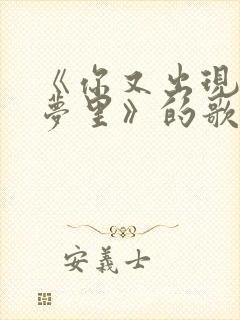 《你又出現
夢里》的歌
安義士